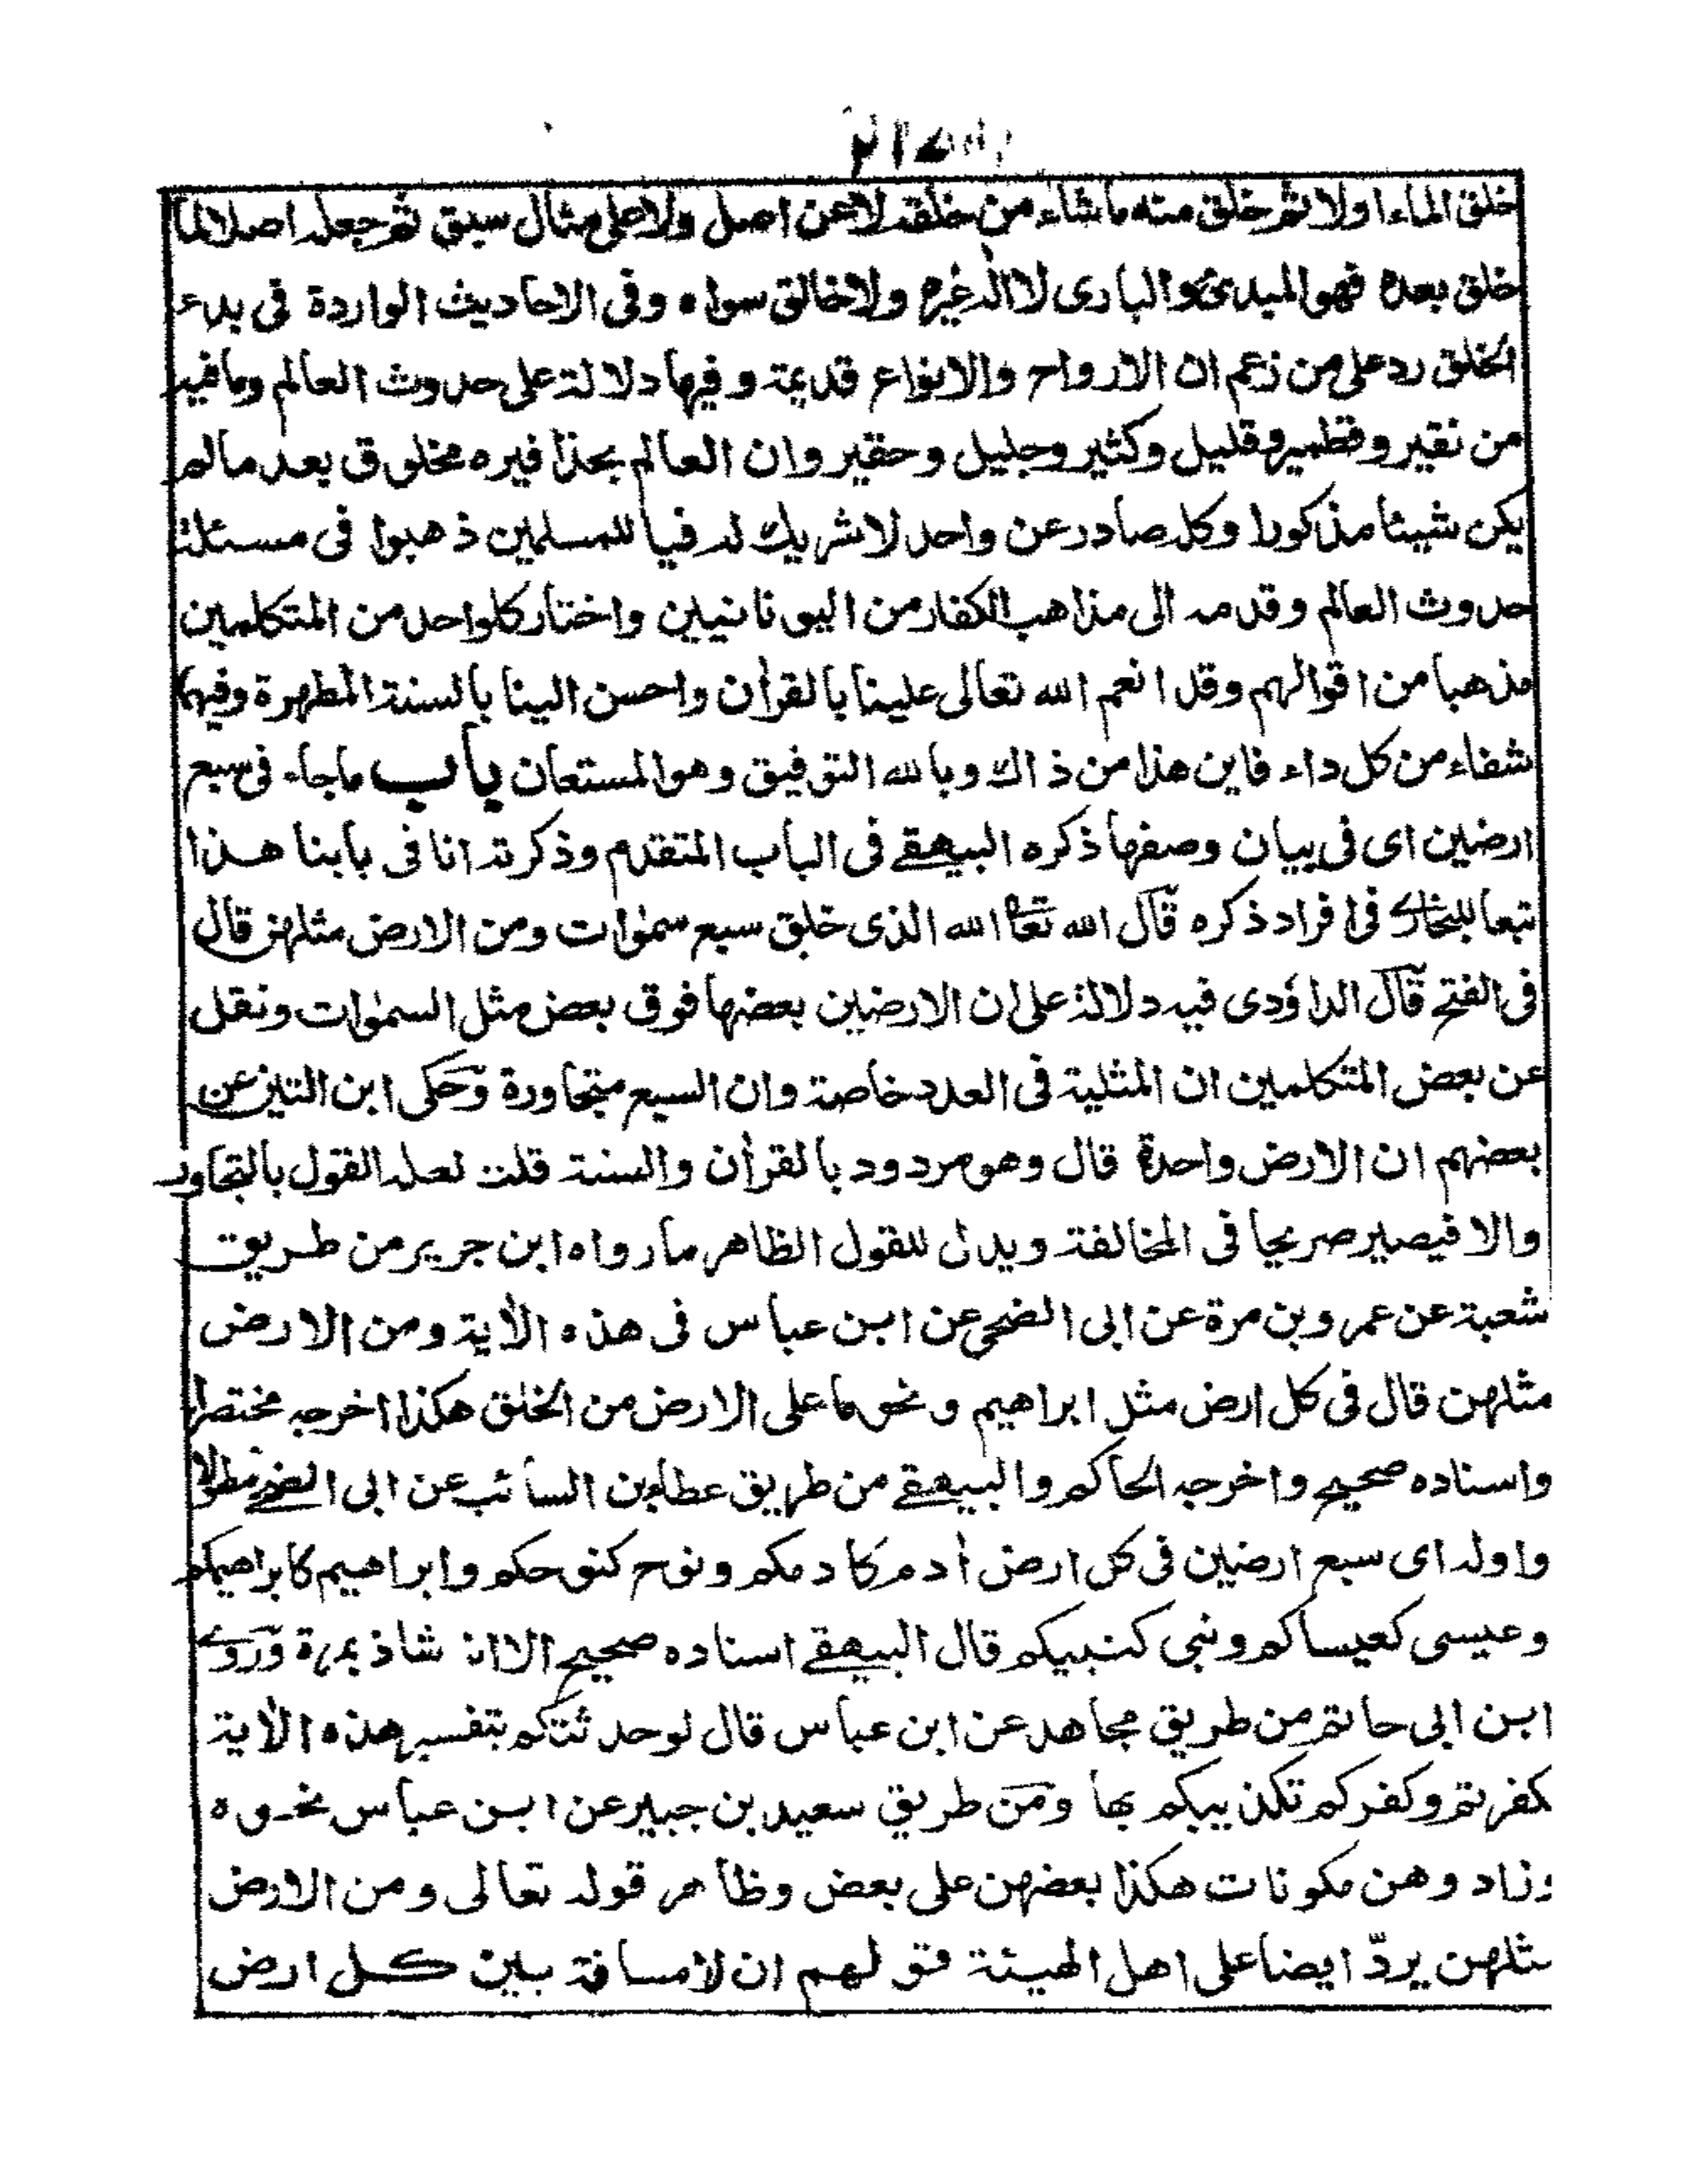 خلق الماء اولا ثم خلق منه ما شاء من خلقه لا عن اصل ولا على مثال سبق ثم جعله اصلا لما
خلق بعده فهو المبدئ والبارى لا اله غيره ولا خالق سواه وفى الاحاديث الواردة فى بدء
الخلق رد على من زعم ان الارواح والانواع قديمة وفيها دلالة على حدوث العالم وما فيه
من نقير وقطمير وقليل وكثير وجليل وحقير وان العالم بحذافيره مخلوق بعد ما لم
يكن شيئا مذكورا وكل صادر عن واحد لا شريك له فيا للمسلمين ذهبوا فى مسئلة
حدوث العالم وقدمه الى مذاهب الكفار من اليونانيين واختار كلواحد من المتكلمين
مذهبا من اقوالهم وقد انعم الله تعالى علينا بالقرأن واحسن الينا بالسنة المطهرة وفيها
شفاء من كل داء فاين هذا من ذاك وبالله التوفيق وهو المستعان باب ماجاء فى سبع
ارضين اى فى بيان وصفها ذكره البيهقے فى الباب المتقدم وذكرته انا فى بابنا هذا
تبعا للبخارى فى افراد ذكره قال الله تعا الله الذى خلق سبع سمٰوات ومن الارض مثلهن قال
فى الفتح قال الداؤدى فيه دلالة على ان الارضين بعضها فوق بعض مثل السمٰوات ونقل
عن بعض المتكلمين ان المثلية فى العدد خاصة وان السبع متجاورة وحكى ابن التين عن
بعضهم ان الارض واحدة قال وهو مردود بالقرأن والسنة قلت لعله القول بالتجاور
والا فيصير صريحا فى المخالفة ويدل للقول الظاهر ما رواه ابن جرير من طريق
شعبة عن عمرو بن مرة عن ابى الضحى عن ابن عباس فى هذه الأية ومن الارض
مثلهن قال فى كل ارض مثل ابراهيم ونحو ما على الارض من الخلق هكذا اخرجه مختصرا
واسناده صحيح واخرجه الحاكم والبيهقے من طريق عطاء بن السائب عن ابى الضحے مطولا
واوله اى سبع ارضين فى كل ارض أدم كادمكم ونوح كنوحكم وابراهيم كابراهيمكم
وعيسى كعيساكم ونبى كنبيكم قال البيهقے اسناده صحيح الا انه شاذ بمرة وروے
ابن ابى حاتم من طريق مجاهد عن ابن عباس قال لو حدثتكم بتفسير هذه الأية
لكفرتم وكفركم تكذيبكم بها ومن طريق سعيد بن جبير عن ابن عباس نحوه
وزاد وهن مكونات هكذا بعضهن على بعض وظاهر قوله تعالى ومن الارض
مثلهن يردّ ايضا على اهل الهيئة قولهم ان لا مسافة بين كل ارض